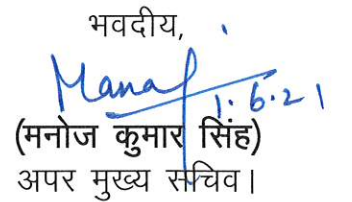 भवदीय,
Manoj
1.6.21
(मनोज कुमार सिंह)
अपर मुख्य सचिव।